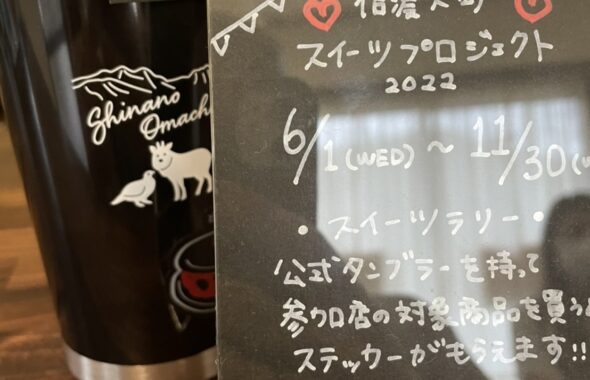 Shinano
Omach
スイーツプロジェクト
2022
6/1(WED)〜11/30(W
・スイーツラリー・
公式タンブラーを持って
参加店の対象商品を買う
ステッカーがもらえます!!